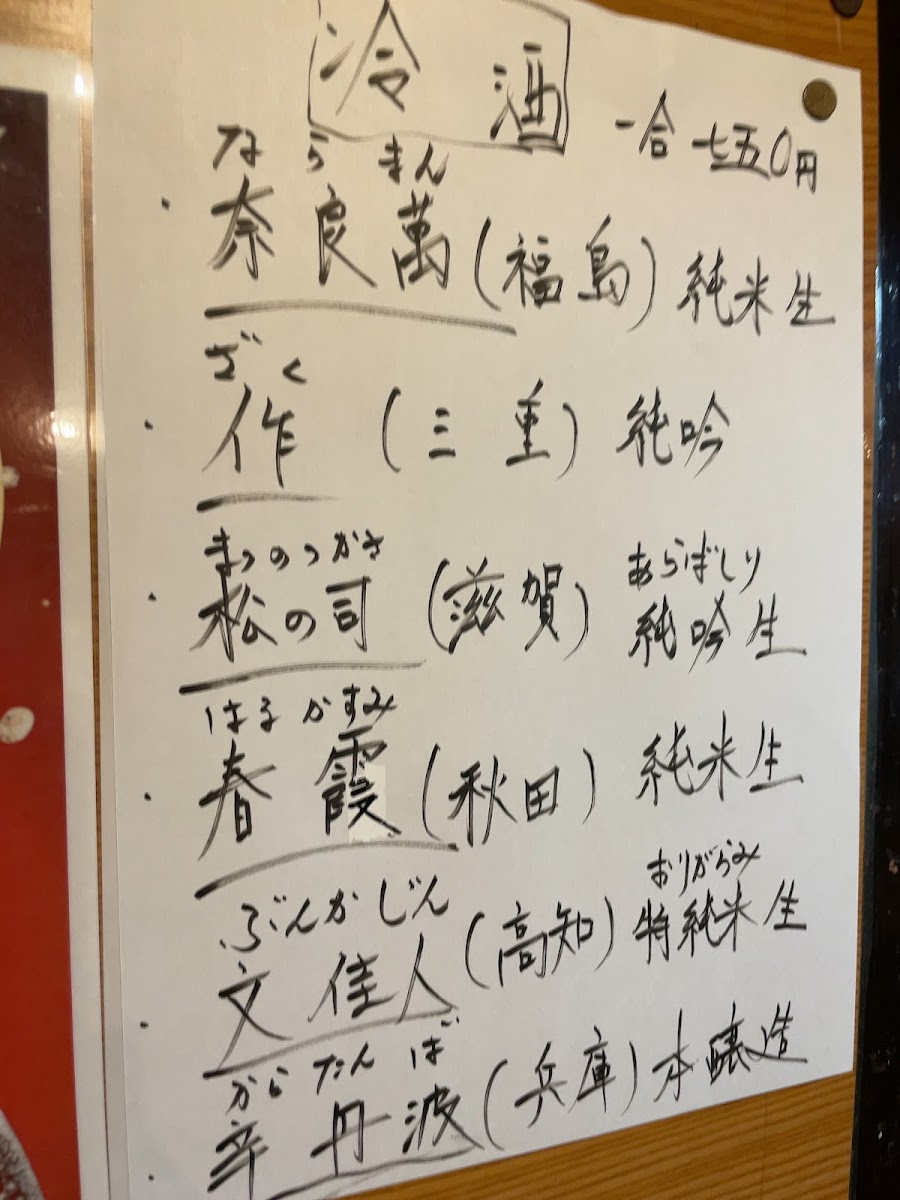 冷酒 一合 七五〇円
ならまん
・奈良萬(福島) 純米生
ざく
・作 (三重) 純吟
まつのつかさ あらばしり
・松の司 (滋賀) 純吟生
はるかすみ
・春霞(秋田) 純米生
ぶんかじん おりがらみ
・文佳人(高知) 特純米生
からたんば
・辛丹波(兵庫)本醸造